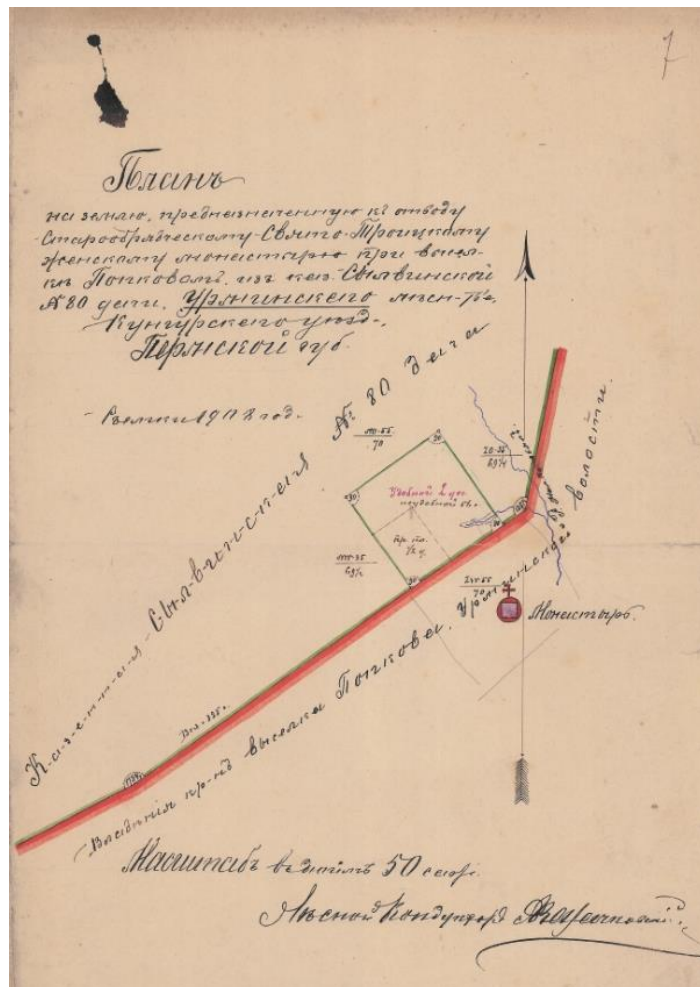 7
Планъ
на землю, предназначенную къ отводу
Старообрядческому Свято-Троицкому
женскому монастырю при высел-
кѣ Попковомъ, изъ каз. Сылвинской
№ 80 дачи, Урминскаго лѣсн-ва,
Кунгурскаго уѣзд.,
Пермской губ.
1908 год.
Казенная Сылвинская № 80 дача
70
20-35
69½
90
90
Удобной 2 дес.
неудобной
пр. пл.
½ д.
69½
90
70
Монастырь.
Владѣнія кр-нъ выселка Попкова, Урминской волости.
Масштабъ въ дюймѣ 50 саж.
Лѣсной Кондукторъ